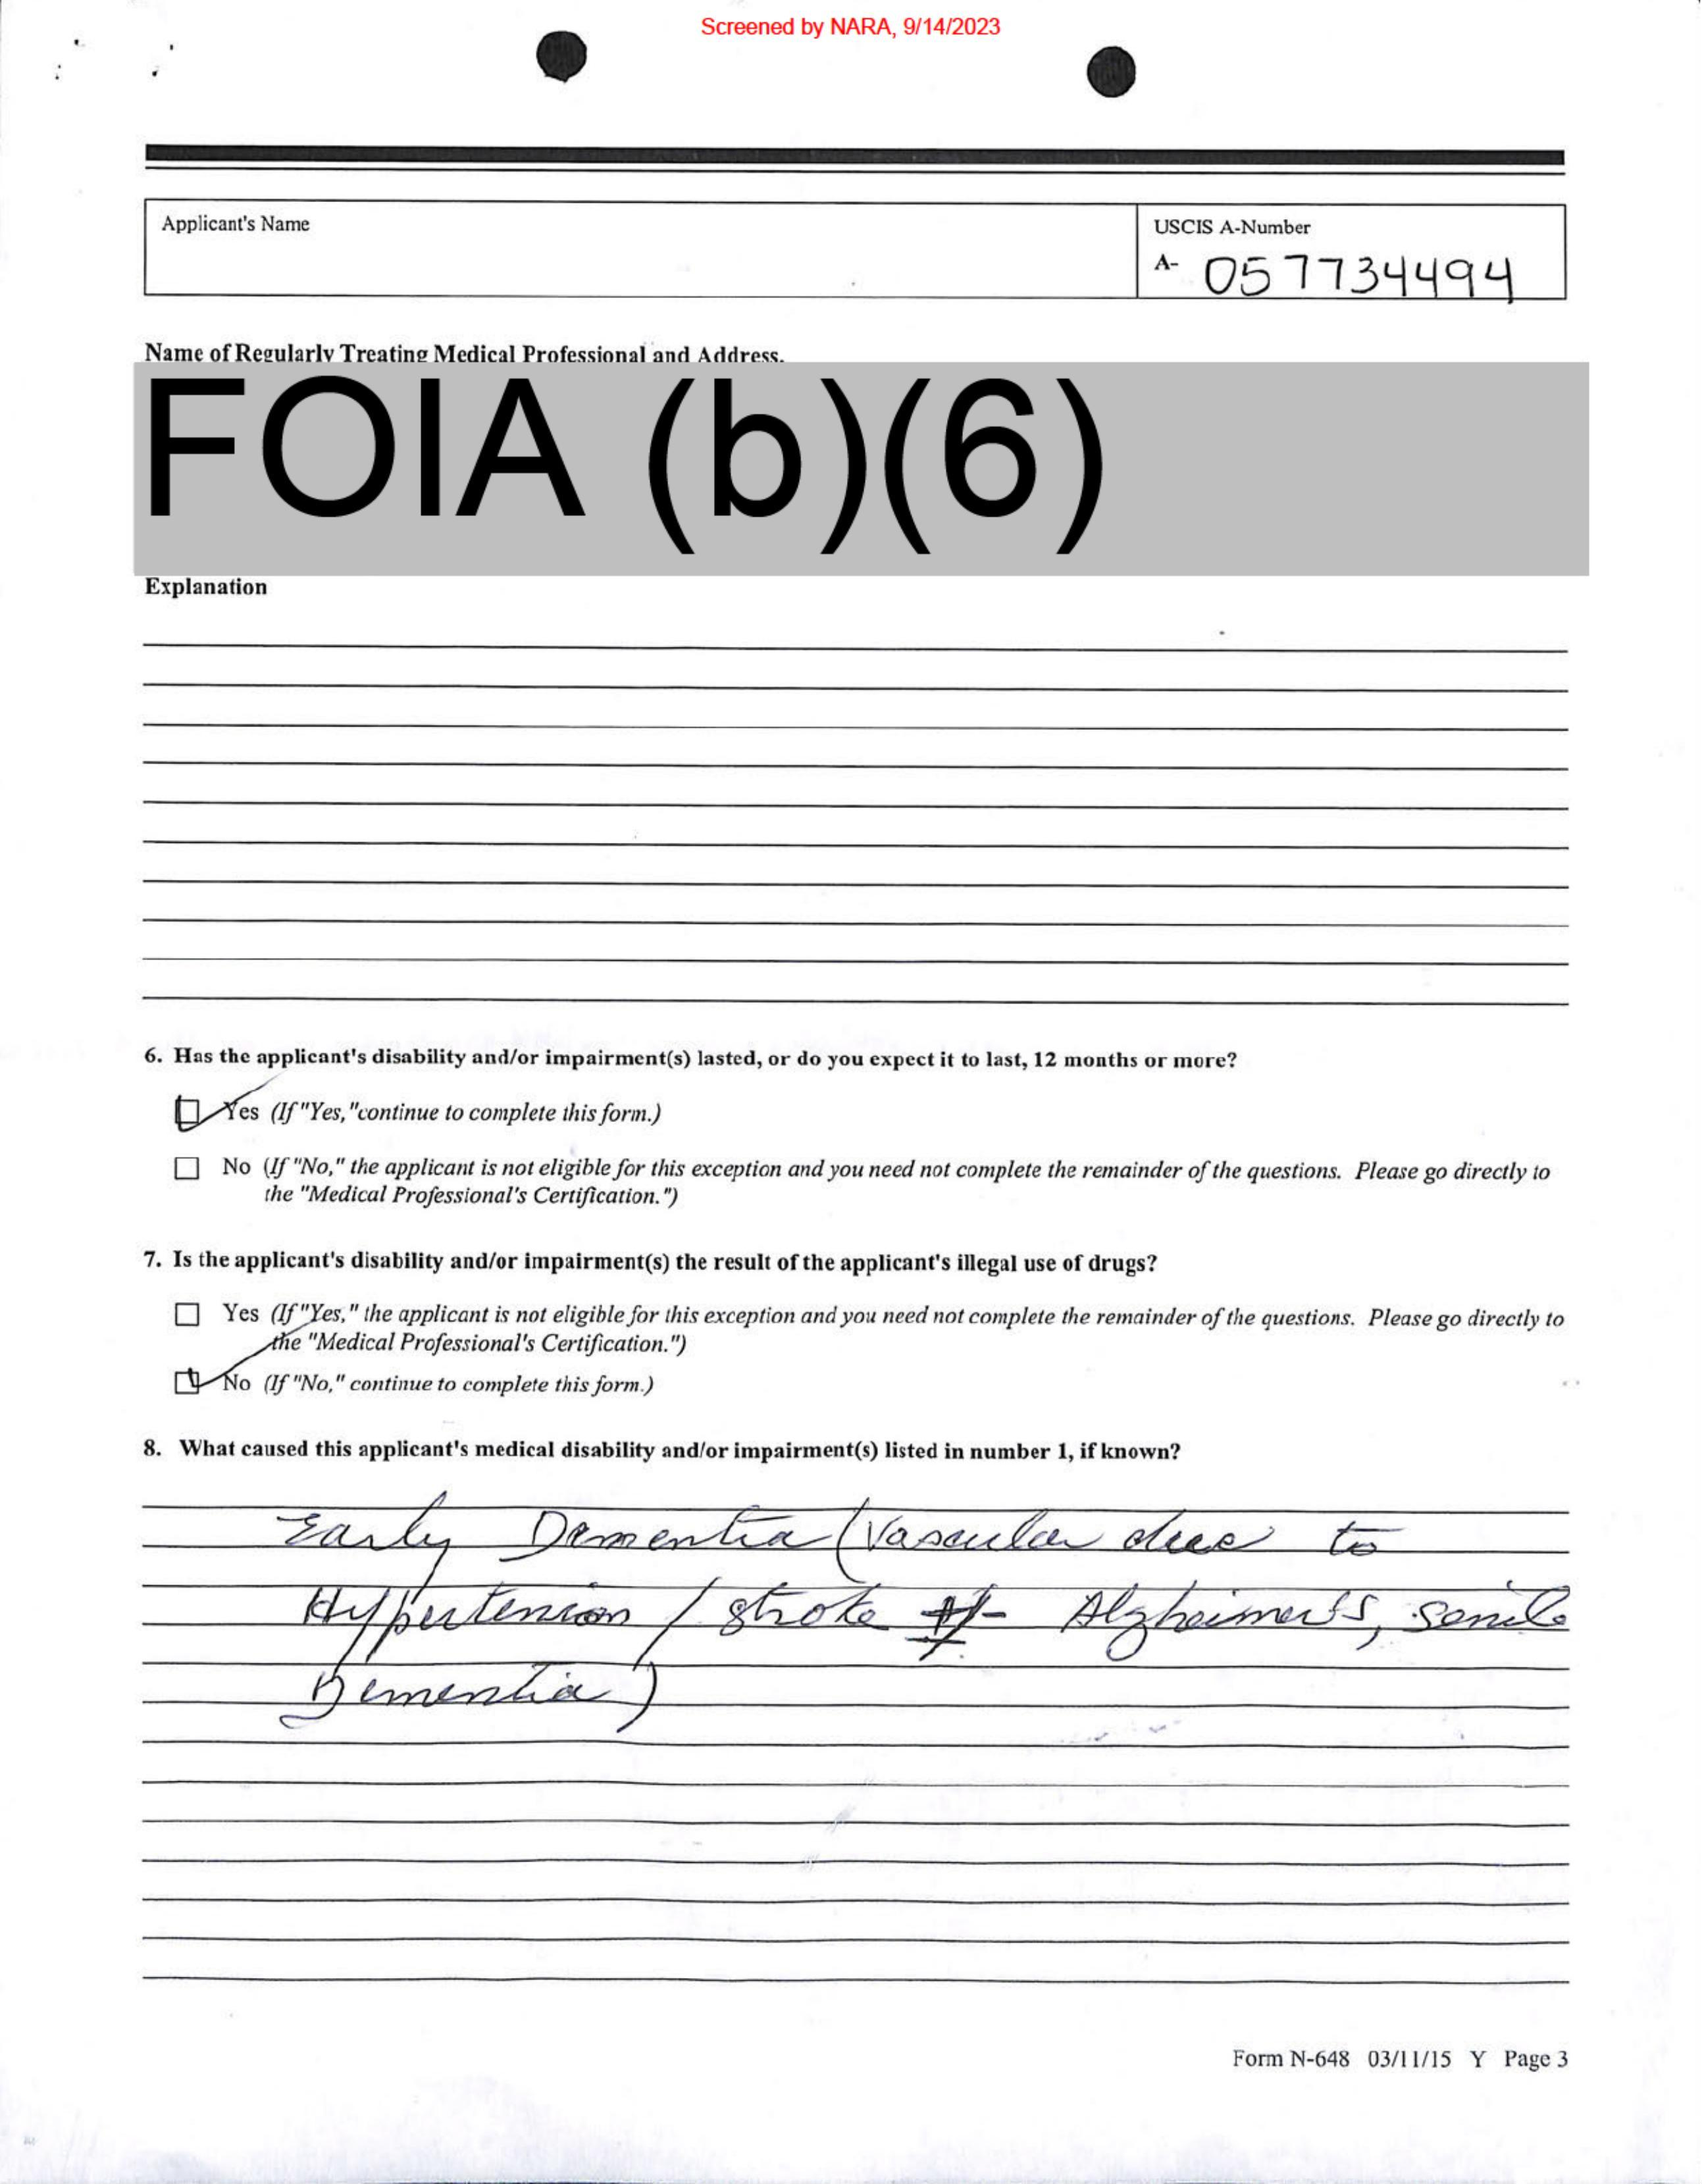 Screened by NARA, 9/14/2023
Applicant's Name
USCIS A-Number
A- 057734494
Name of Regularly Treating Medical Professional and Address.
FOIA (b)(6)
Explanation
6. Has the applicant's disability and/or impairment(s) lasted, or do you expect it to last, 12 months or more?
Yes (If "Yes,"continue to complete this form.)
No (If "No," the applicant is not eligible for this exception and you need not complete the remainder of the questions. Please go directly to
the "Medical Professional's Certification.")
7. Is the applicant's disability and/or impairment(s) the result of the applicant's illegal use of drugs?
Yes (If "Yes," the applicant is not eligible for this exception and you need not complete the remainder of the questions. Please go directly to
the "Medical Professional's Certification.")
No (If "No," continue to complete this form.)
8. What caused this applicant's medical disability and/or impairment(s) listed in number 1, if known?
Early Dementia (Vascular due to
Hypertension / stroke +/- Alzheimer's, senile
Dementia)
Form N-648 03/11/15 Y Page 3